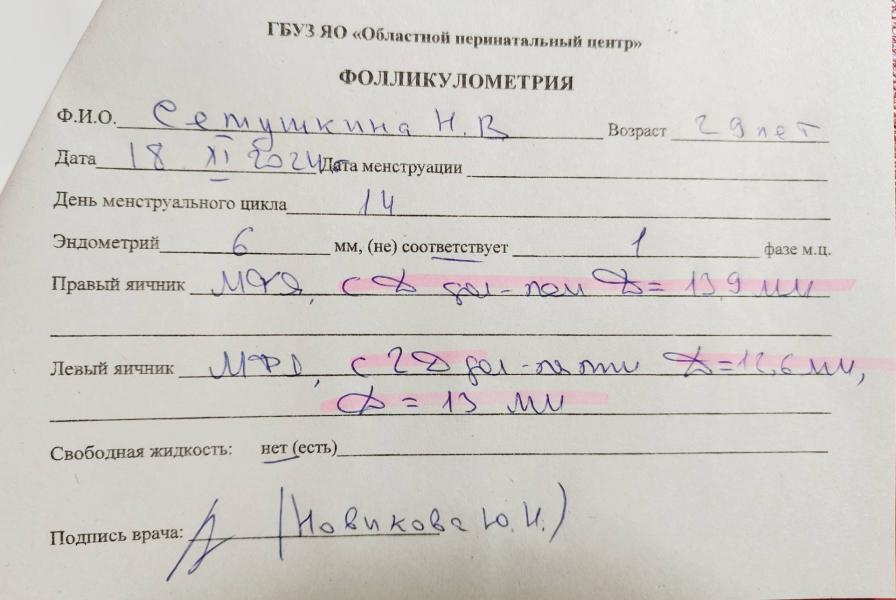 ГБУЗ ЯО «Областной перинатальный центр»
ФОЛЛИКУЛОМЕТРИЯ
Ф.И.О. Сетушкина Н.В Возраст 29 лет
Дата 18 XI 2024г. Дата менструации
День менструального цикла 14
Эндометрий 6 мм, (не) соответствует 1 фазе м.ц.
Правый яичник МФЯ, с D = 13,9 мм
Левый яичник МФЯ, с 2 D = 12,6 мм,
D = 13 мм
Свободная жидкость: нет (есть)
Подпись врача: (Новикова Ю.И.)